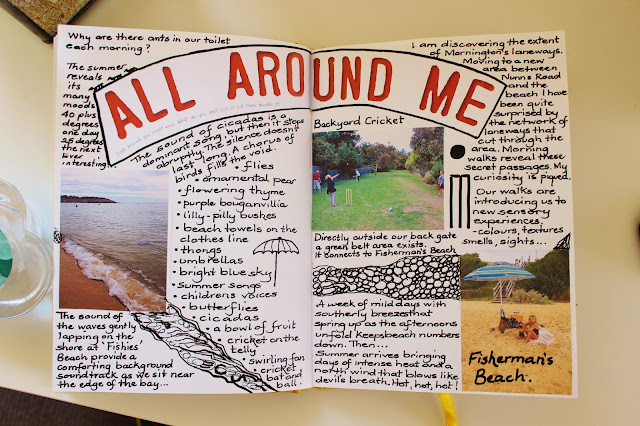 Why are there ants in our toilet
each morning?
The summer
reveals
its
many
moods
40 plus
degrees
one day
25 degrees
the next
Ever
interesting!
ALL AROUND ME
The sound of cicadas is a
dominant song, but then it stops
abruptly. The silence doesn't
last long. A chorus of
birds fills the void.
• flies
• ornamental pear
• flowering thyme
• purple bouganvillia
• lilly-pilly bushes
• beach towels on the
clothes line
• thongs
• umbrellas
• bright blue sky
• summer songs
• childrens voices
• butterflies
• cicadas
• a bowl of fruit
• cricket on the
telly
• swirling fan
• cricket
bat and
ball.
The sound of
the waves gently
lapping on the
shore at 'Fishies'
Beach provide a
comforting background
soundtrack as we sit near
the edge of the bay...
Backyard Cricket
Directly outside our back gate
a green belt area exists.
It connects to Fisherman's Beach
A week of mild days with
southerly breezes that
spring up as the afternoons
unfold keeps beach numbers
down. Then...
Summer arrives bringing
days of intense heat and a
north wind that blows like
devils breath. Hot, hot, hot!
I am discovering the extent
of Mornington's laneways.
Moving to a new
area between
Nunns Road
and the
beach I have
been quite
surprised by
the network of
laneways that
cut through the
area. Morning
walks reveal these
secret passages. My
curiosity is piqued.
Our walks are
introducing us
to new sensory
experiences.
-colours, textures
smells, sights...
Fisherman's
Beach.